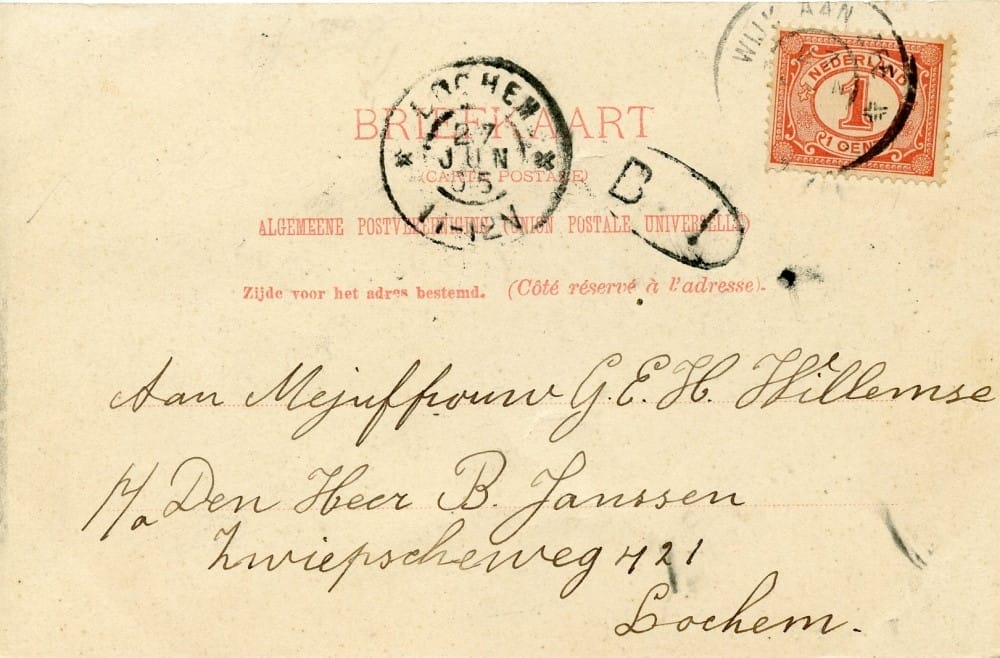 WIJK AAN ZEE
NEDERLAND
1
1 CENT
LOCHEM
27
JUN
05
BRIEFKAART
(CARTE POSTALE)
B. 1
ALGEMEENE POSTVEREENIGING (UNION POSTALE UNIVERSELLE)
Zijde voor het adres bestemd. (Côté réservé à l'adresse).
Aan Mejuffrouw G. E. H. Willemse
p/a Den Heer B. Janssen
Zwiepscheweg 421
Lochem.